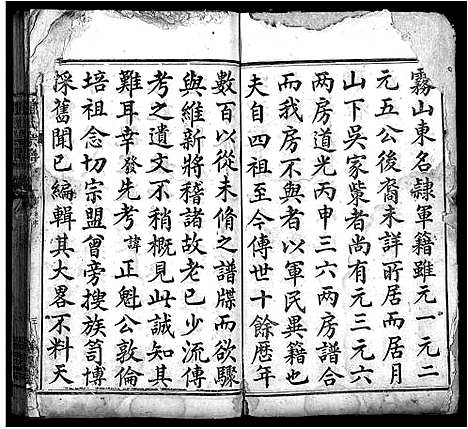 霧山東名隷軍籍雖元一元二
元五公後裔未詳所居而居月
山下吳家紫者尚有元三元六
兩房道光丙申三六兩房譜合
而我房不與者以軍民異籍也
夫自四祖至今傳世十餘歴年
數百以從未脩之譜牒而欲驟
與維新將稽諸故老已少流傳
考之遺文不稍概見此誠知其
難耳幸發先考諱正魁公敦倫
培祖念切宗盟曾旁搜族笥博
採舊聞已編輯其大畧不料天